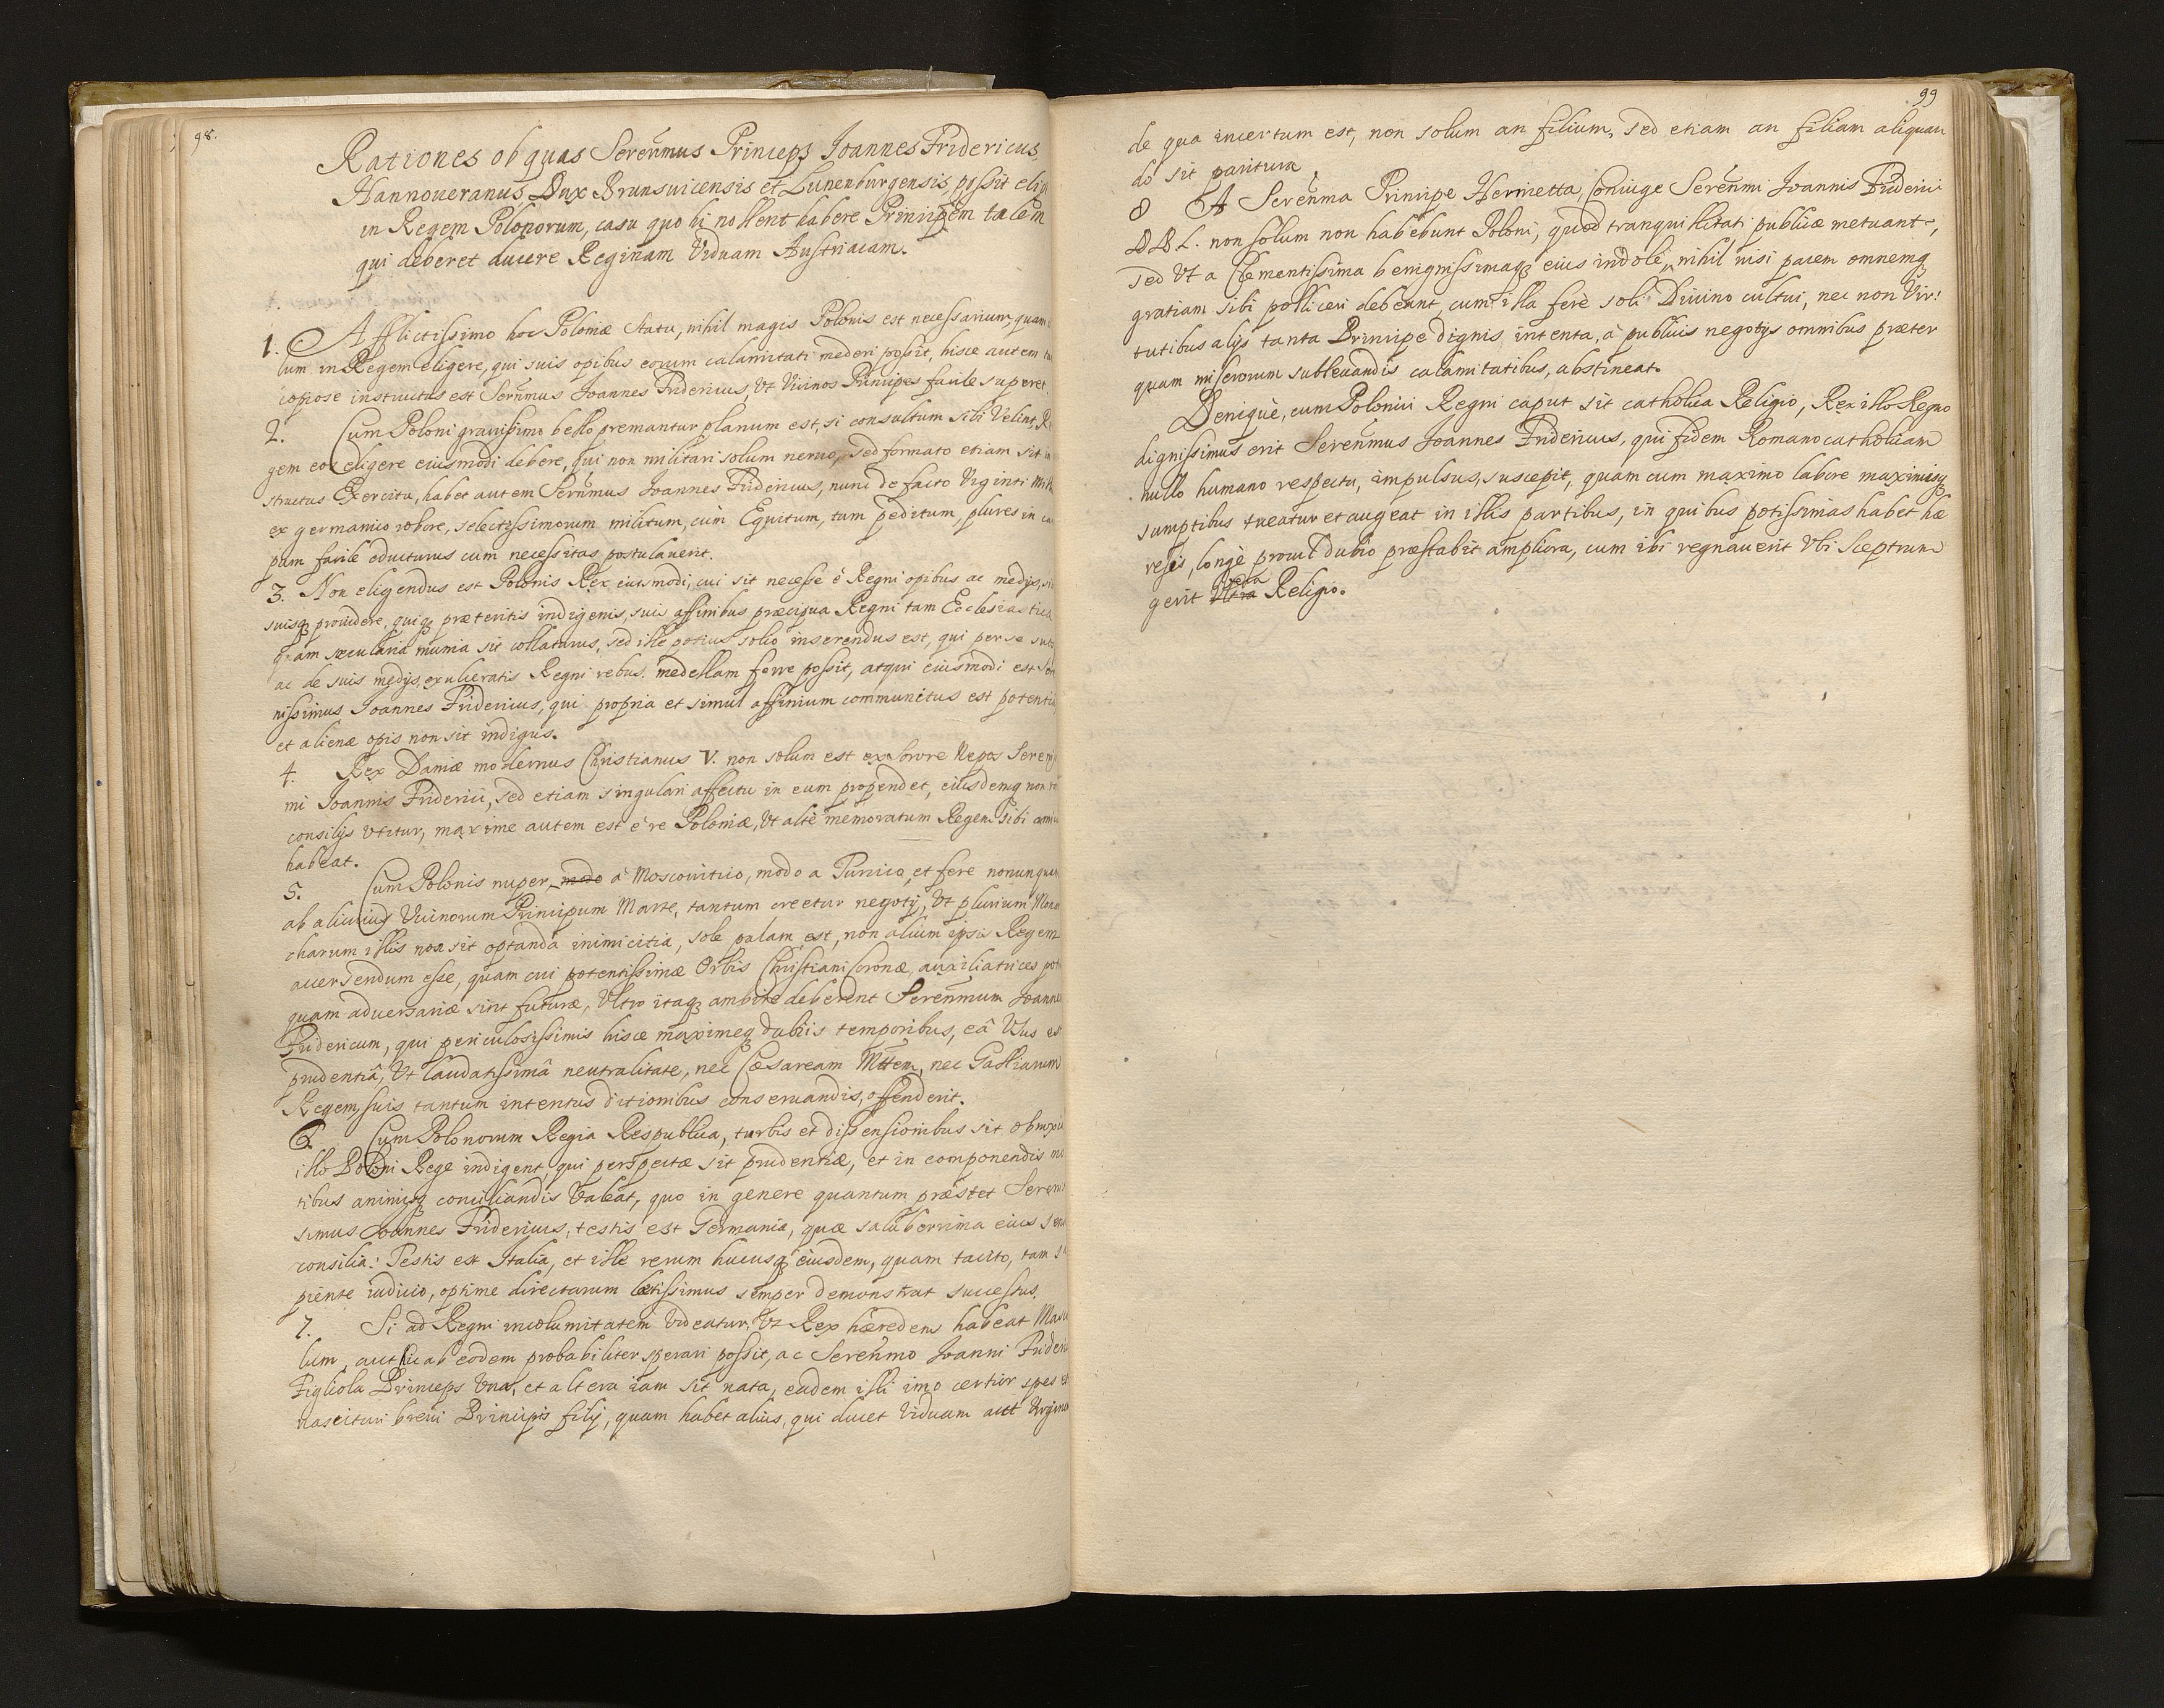 98.
Rationes ob quas Serenmus Princeps Joannes Fridericus
Hannoueranus, Dux Brunsuicensis et Lunenburgensis, possit elig
in Regem Polonorum, casu quo hi nollent habere Principem talem
qui deberet ducere Reginam Viduam Austriacam.
1. Afflictissimo hoc Poloniæ statu, nihil magis Polonis est necessarium, quam
lum in Regem eligere, qui suis opibus eorum calamitati mederi possit, hisce autem
copiose instructus est Sernmus Joannes Fridericus, Vt Vicinos Principes facile superet.
2. Cum Poloni grauissimo bello premantur planum est, si consultum sibi Velint, Re
gem eos eligere eiusmodi debere, qui non militari solum neruo, sed formato etiam sit in
structus Exercitu, habet autem Sernmus Joannes Fridericus, nunc de facto Viginti Mill
ex germanico robore, selectissimorum militum, cùm Equitum, tum peditum, plures in ca
pum facile educturus cum necessitas postulauerit.
3. Non eligendus est Polonis Rex eiusmodi, cui sit necesse è Regni opibus ac medijs,
suisq prouidere, quiq præteritis indigenis, suis affinibus præcipua Regni tam Ecclesiastica
quam sæcularia munia sit collaturus, sed ille potius solio inserendus est, qui per se
ac de suis medijs, exulceratis Regni rebus medellam ferre possit, atqui eiusmodi est Sere
nissimus Joannes Fridericus, qui propria et simul affinium communitus est potentia
et alienæ opis non sit indigus.
4. Rex Daniæ modernus Christianus V. non solum est ex sorore Nepos Sereniss
mi Joannis Friderici, sed etiam singulari affectu in eum propendet, eiusdemq non
consilijs vtitur, maxime autem est è re Poloniæ, Vt altè memoratum Regem sibi amic
habeat.
5. Cum Polonis nuper, modo à Moscouitico, modo a Turcico, et fere nonunquam
ab alicuius Vicinorum Principum Marte, tantum creetur negotij, Vt plurium Monar
charum illis non sit optanda inimicitia, sole palam est, non alium ipsis Regem
accersendum esse, quam cui potentissimæ Orbis Christiani Coronæ, auxiliatrices poti
quam aduersariæ sint futuræ, Vltro itaq ambire deberent Serenmum Joannem
Fridericum, qui periculosissimis hisce maximeq dubiis temporibus, eâ Vsus est
prudentiâ, Vt laudatissimâ neutralitate, nec Cæsaream Mttem, nec Galliarum
Regem, suis tantum intentus ditionibus conseruandis, offenderit.
6. Cum Polonorum Regia Respublica, turbis et dissensionibus sit obnoxia
illo Poloni Rege indigent, qui perspectæ sit prudentiæ, et in componendis mo
tibus animisq conciliandis Valeat, quo in genere quantum præstet Serenis
simus Joannes Fridericus, testis est Germania, quæ saluberrima eius
consilia: Testis est Italia, et ille rerum hucusq eiusdem, quam tacito, tam sa
piente iudicio, optime directarum lætissimus semper demonstrat successus.
7. Si ad Regni incolumitatem Videatur, Vt Rex hæredem habeat Mascu
lum, aut hic ab eodem probabiliter sperari possit, ac Serenmo Joanni Frideri
Figliola Princeps Vna, et altera iam sit nata, eadem illi imo certior spes est
nascituri breui Principis filij, quam habet alius, qui ducet Viduam aut Virginem
99
de qua incertum est, non solum an filium, sed etiam an filiam aliquan
do sit paritura
8 A Serenma Principe Henrietta, Coniuge Serenmi Joannis Friderici
D B L. non solum non habebunt Poloni, quod tranquillitati publicæ metuant,
sed Vt a Clementissima benignissimaq eius indole, nihil nisi pacem omnemq
gratiam sibi polliceri debeant, cum illa ferè soli Diuino cultui, nec non Vir:
tutibus alijs tanta Principe dignis intenta, à publicis negotijs omnibus præter
quam miserorum subleuandis calamitatibus, abstineat.
Denique, cum Polonici Regni caput sit catholica Religio, Rex illo Regno
dignissimus erit Serenmus Joannes Fridericus, qui fidem Romano catholicam
nullo humano respectu, impulsus, suscepit, quam cum maximo labore maximisq
sumptibus tueatur et augeat in illis partibus, in quibus potissimas habet hæ
resis, longè procul dubio præstabit ampliora, cum ibi regnauerit Vbi Sceptrum
gerit vera Religio.